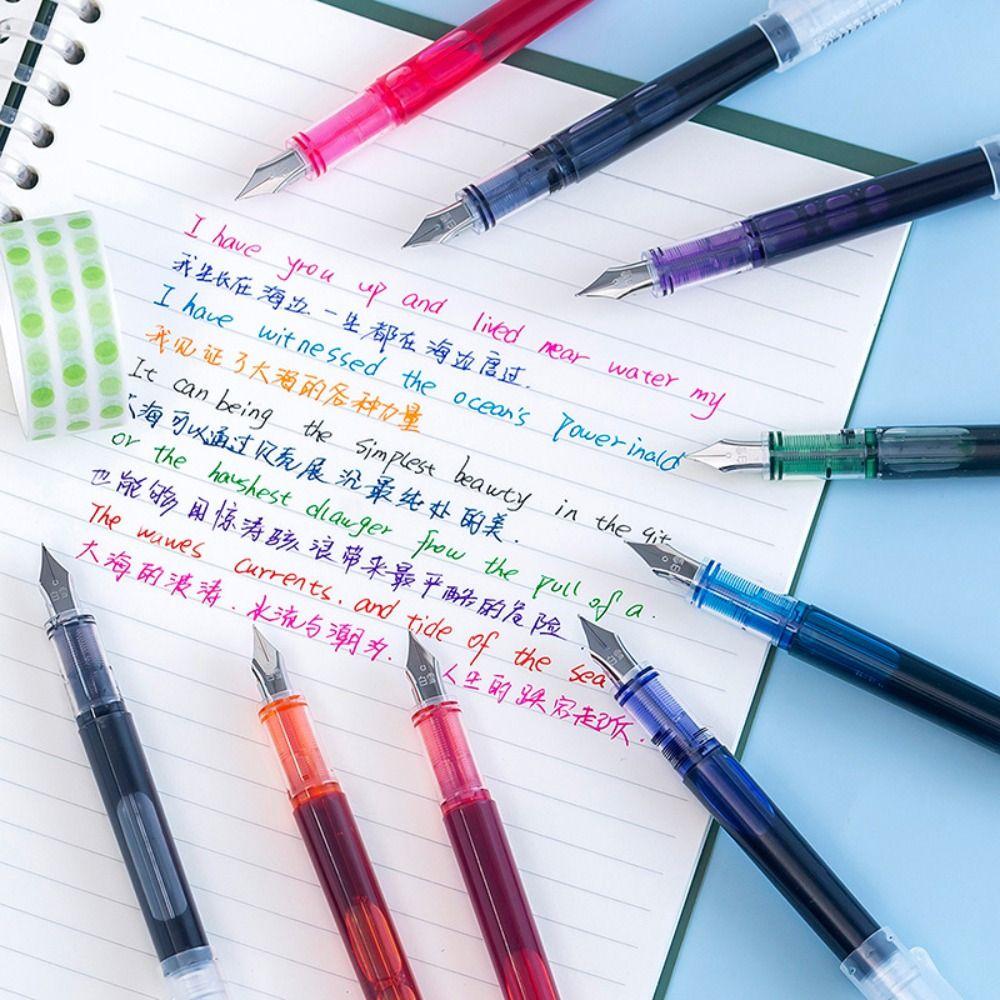 I have yrou up and lived near water my
我生长在海边一生都在海边度过.
I have witnessed the ocean's Powerinald
我见证了大海的各种力量
It can being the simplest beauty in the git
大海可以通过贝壳展沉最纯处的美.
or the haushest dlawger frow the pull of a.
也能够用惊涛骇浪带来最严酷的危险.
The wawes currents. and tide of the sea
大海的波涛.水流与潮汐.
人生的跌宕起伏.